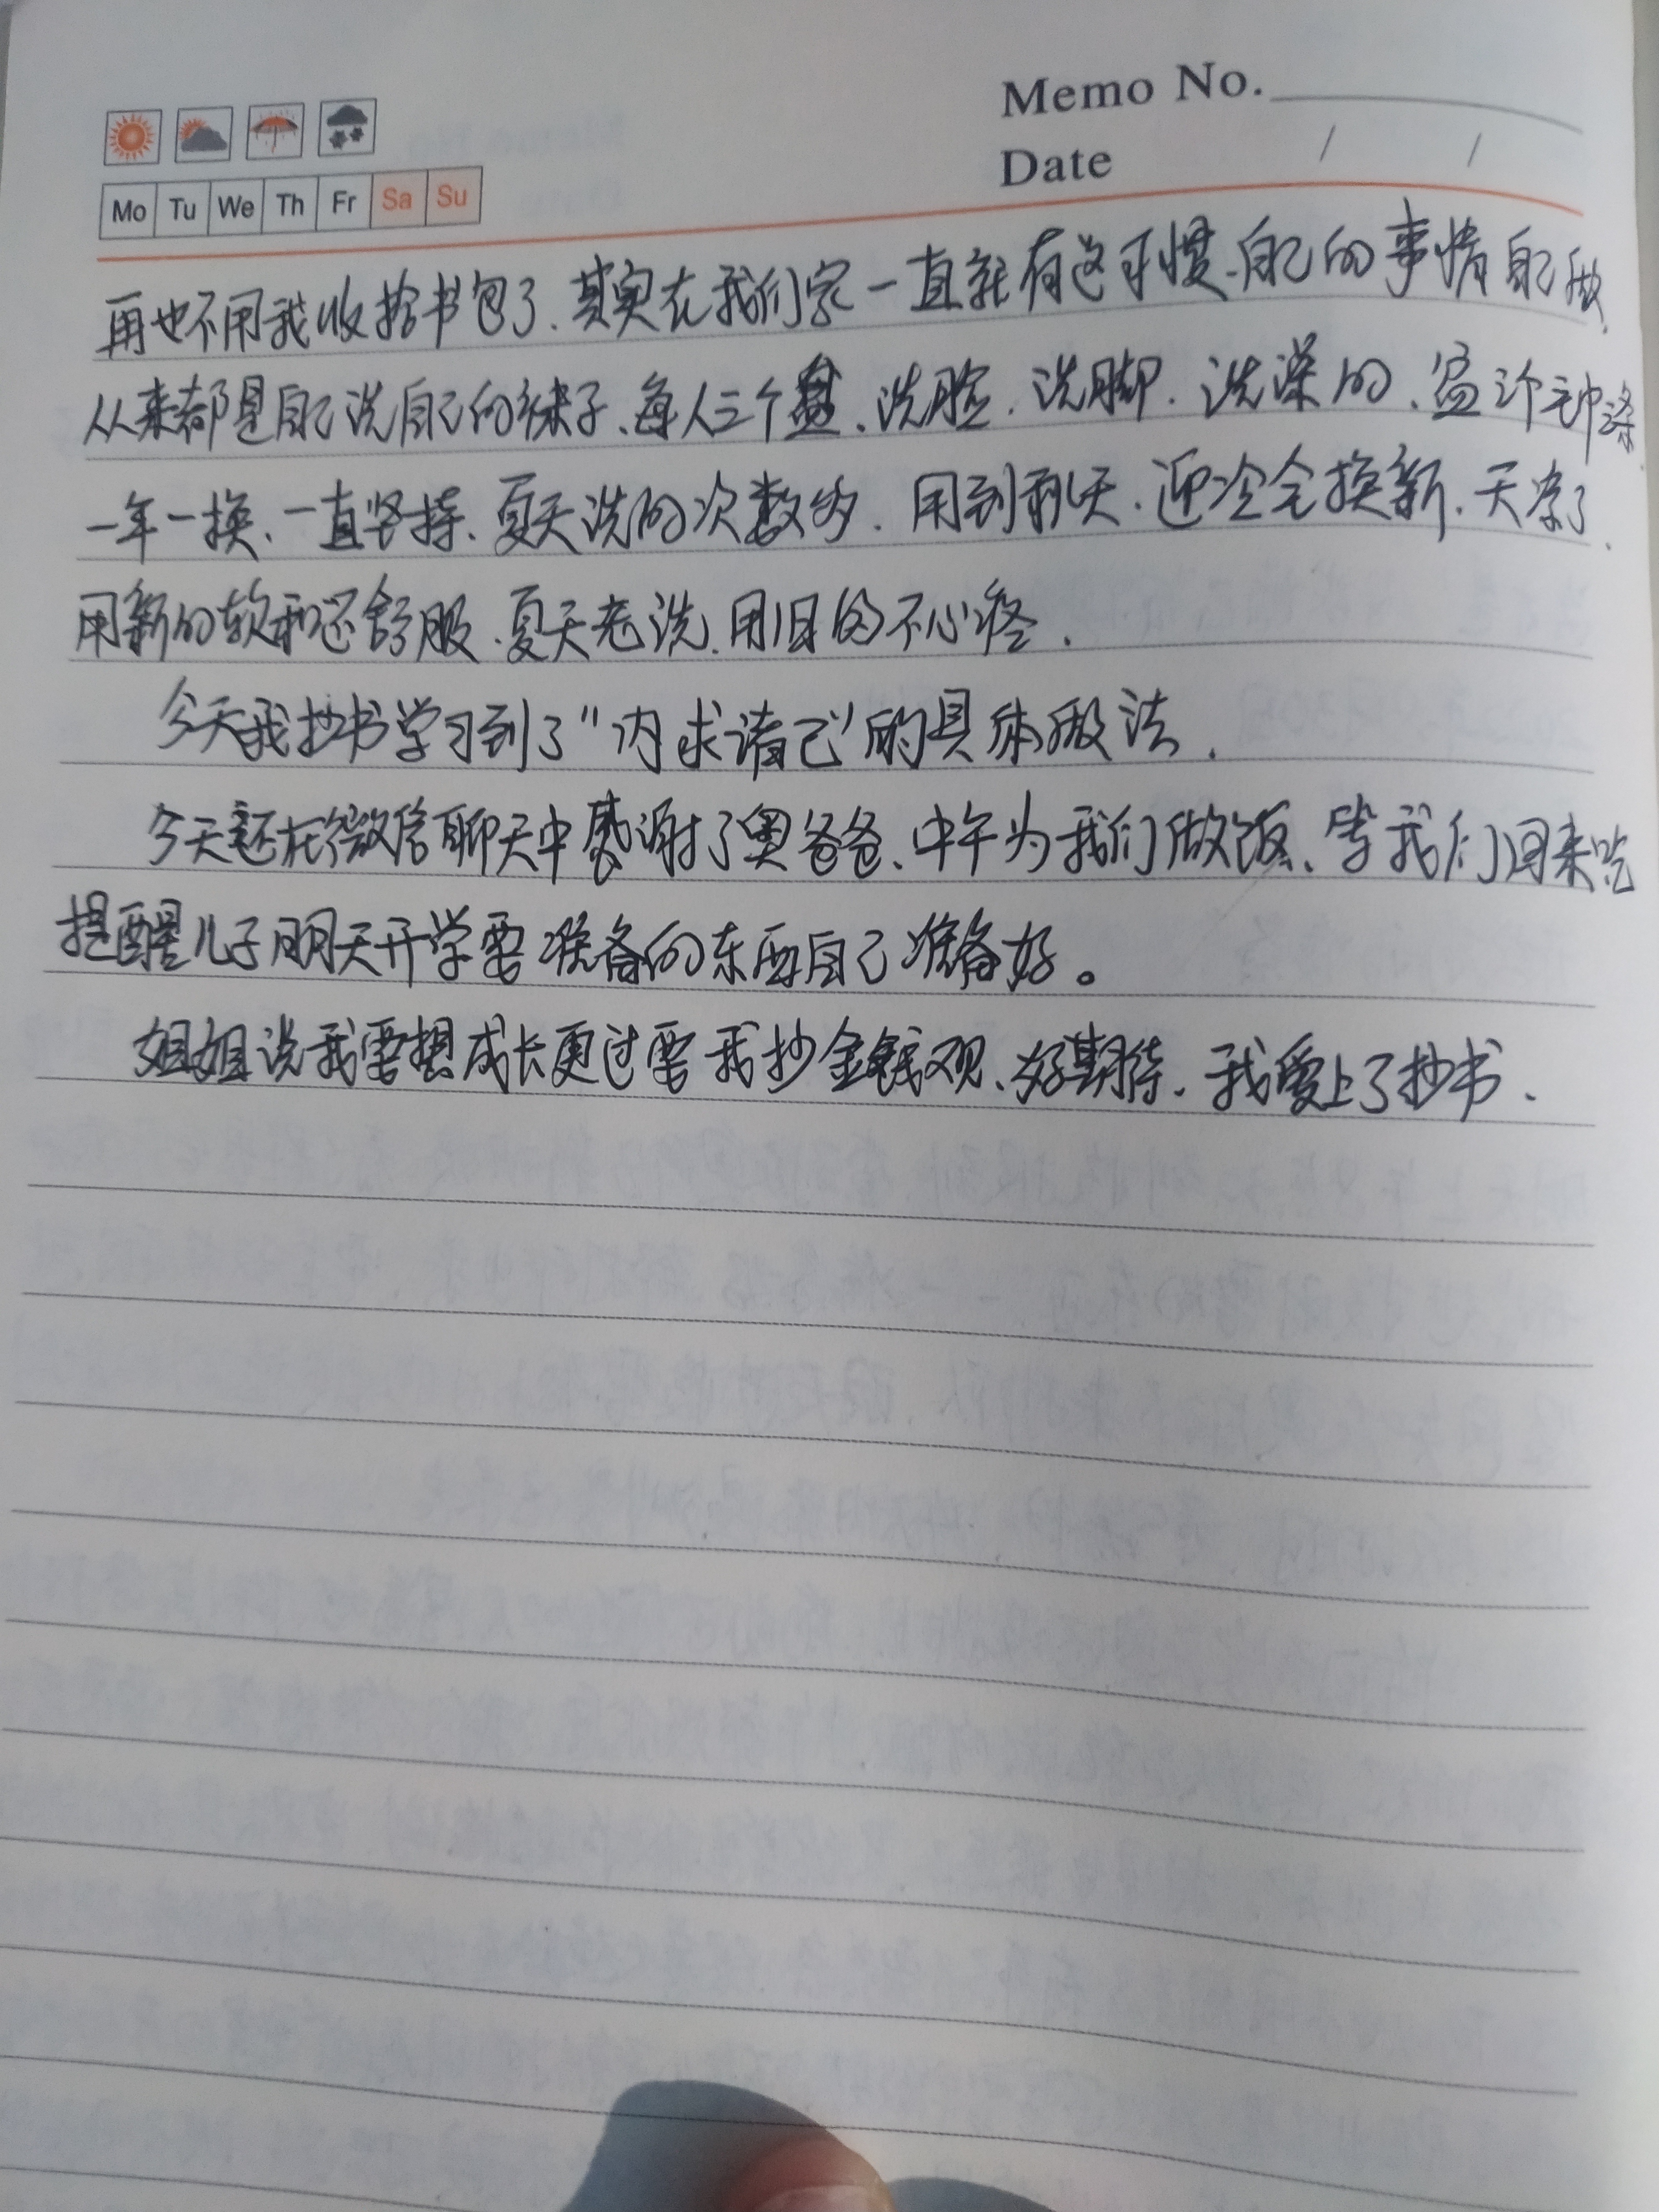 Memo No.
Date / /
Mo Tu We Th Fr Sa Su
再也不用我收拾书包了、其实在我们家一直就有这习惯、自己的事情自己做、
从来都是自己洗自己的袜子、每人三个盆、洗脸、洗脚、洗澡的、
一年一换、一直坚持、夏天洗的次数多、用到秋天、迎冷会换新、天凉了、
用新的软和还舒服、夏天老洗、用旧的不心疼、
今天我抄书学习到了“内求诸己”的具体做法、
今天还在微信聊天中感谢了奥爸爸、中午为我们做饭、等我们回来吃
提醒儿子明天开学要准备的东西自己准备好。
姐姐说我要想成长更过要我抄金钱观、好期待、我爱上了抄书、